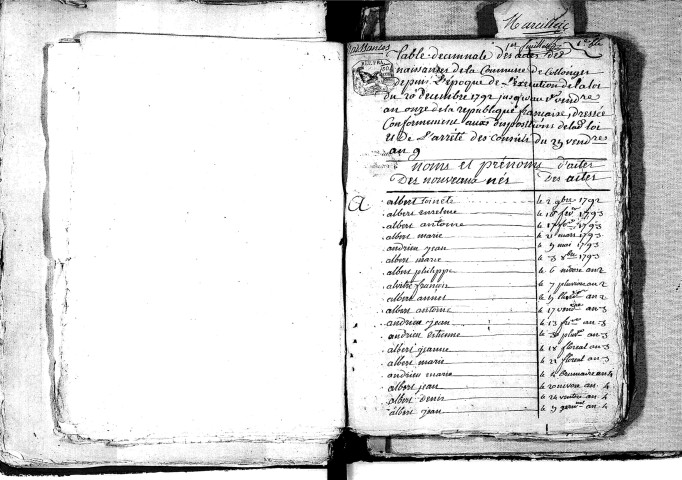 Marcillac
Naissances
1er feuillet
Table decennale des actes de
naissances de la Commune de Collonges
depuis L'époque de L'execution de la loi
du 20 decembre 1792 jusqu'au 1er vendre
an onze de la republique française, dressée
Conformement aux dispositions de lad. loi
et De L'arrêté des consuls du 25 vendres
an 9
noms et prénoms d'actes
Des nouveaux nés Des actes
A
albert toinete le 2 9bre 1792
albert le 16 fevr 1793
albert antoine le 17 1793
albert marie le 21 mars 1793
andrieu jean le 9 mai 1793
albert marie le 3 8bre 1793
albert philippe le 6 nivose an 2
françois le 7 pluviose an 2
albert annet le 9 an 2
albert antoine le 17 vendre an 3
andrieu jean le 13 an 3
andrieu estienne le an 3
albert jeanne le 18 floreal an 3
albert marie le 22 floreal an 3
andrieu marie le brumaire an 4
albert jean le 20 nivose an 4
albert denis le 24 ventose an 4
albert jean le 9 germal an 4